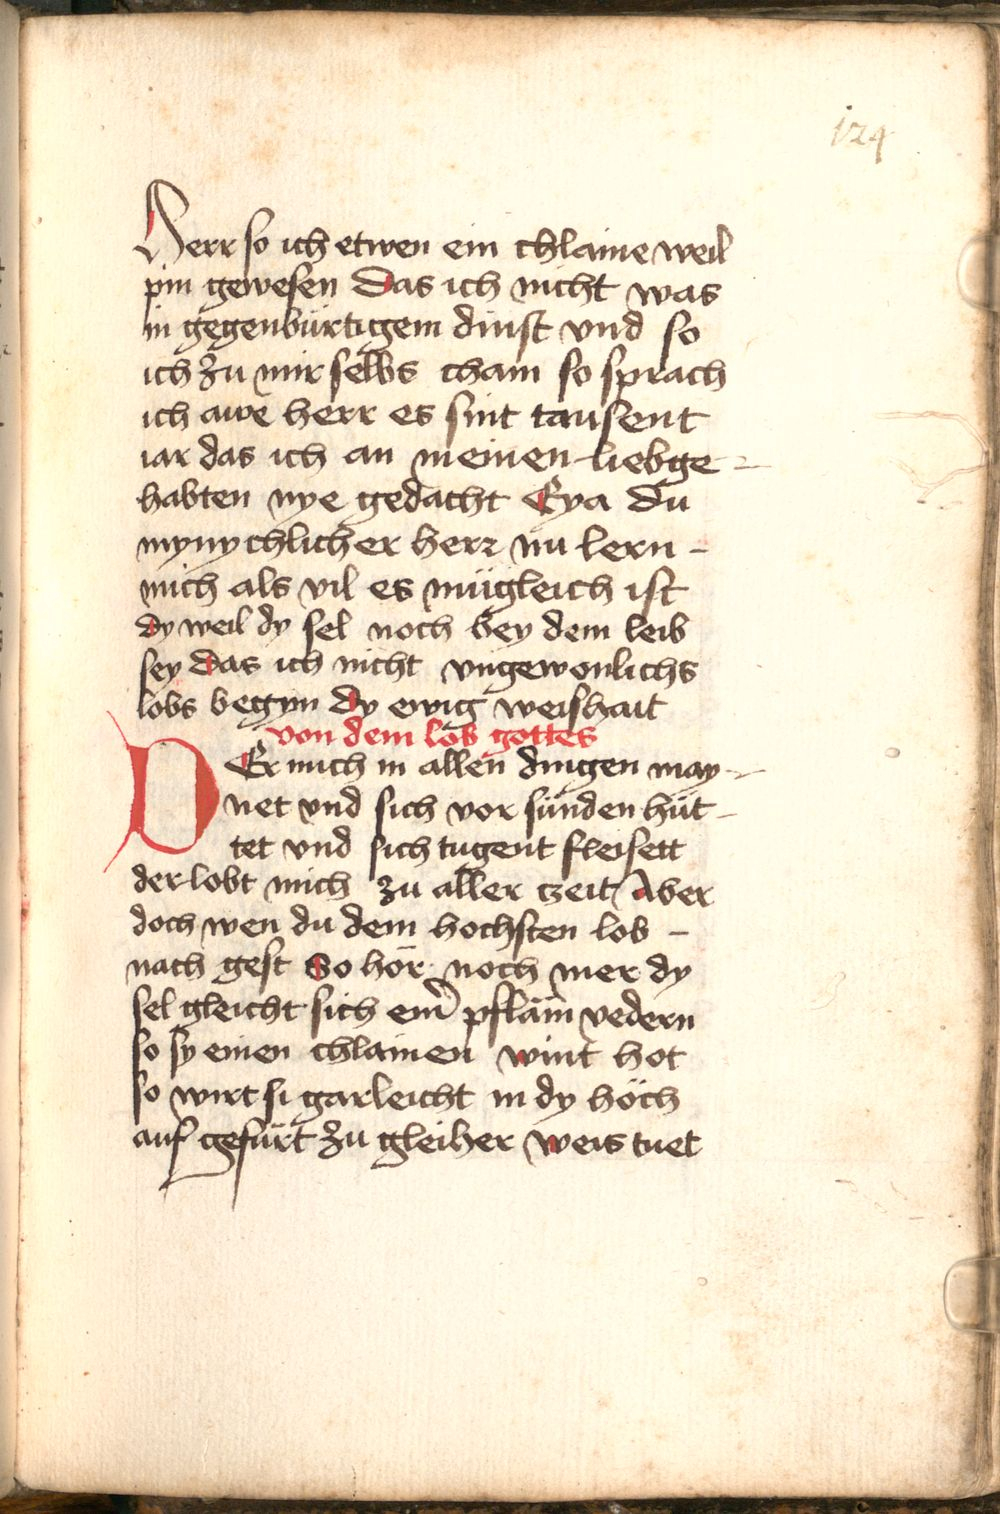 124
Herr so ich etwen ein chlaine weil
pin gewesen Das ich nicht was
in gegenbürtigem dinst vnd so
ich zu mir selbs cham so sprach
ich awe herr es sint tausent
iar das ich an meinen liebge-
habten nye gedacht Eya du
mynychlicher herr nu lern -
mich als vil es mügleich ist
dy weil dy sel noch bey dem leib
sey Das ich nicht vngewonlichs
lobs begyn Dy ewig weishait
von dem lob gottes
DEr mich in allen dingen may-
net vnd sich vor sünden hüt-
tet vnd sich tugent fleisett
der lobt mich zu aller czeit Aber
doch wen du dem hochsten lob -
nach gest So hör noch mer dy
sel gleicht sich einr pfläm vedern
so sy einen chlainen wint hot
so wirt si gar leicht in dy höch
auf gefürt zu gleiher weis tuet